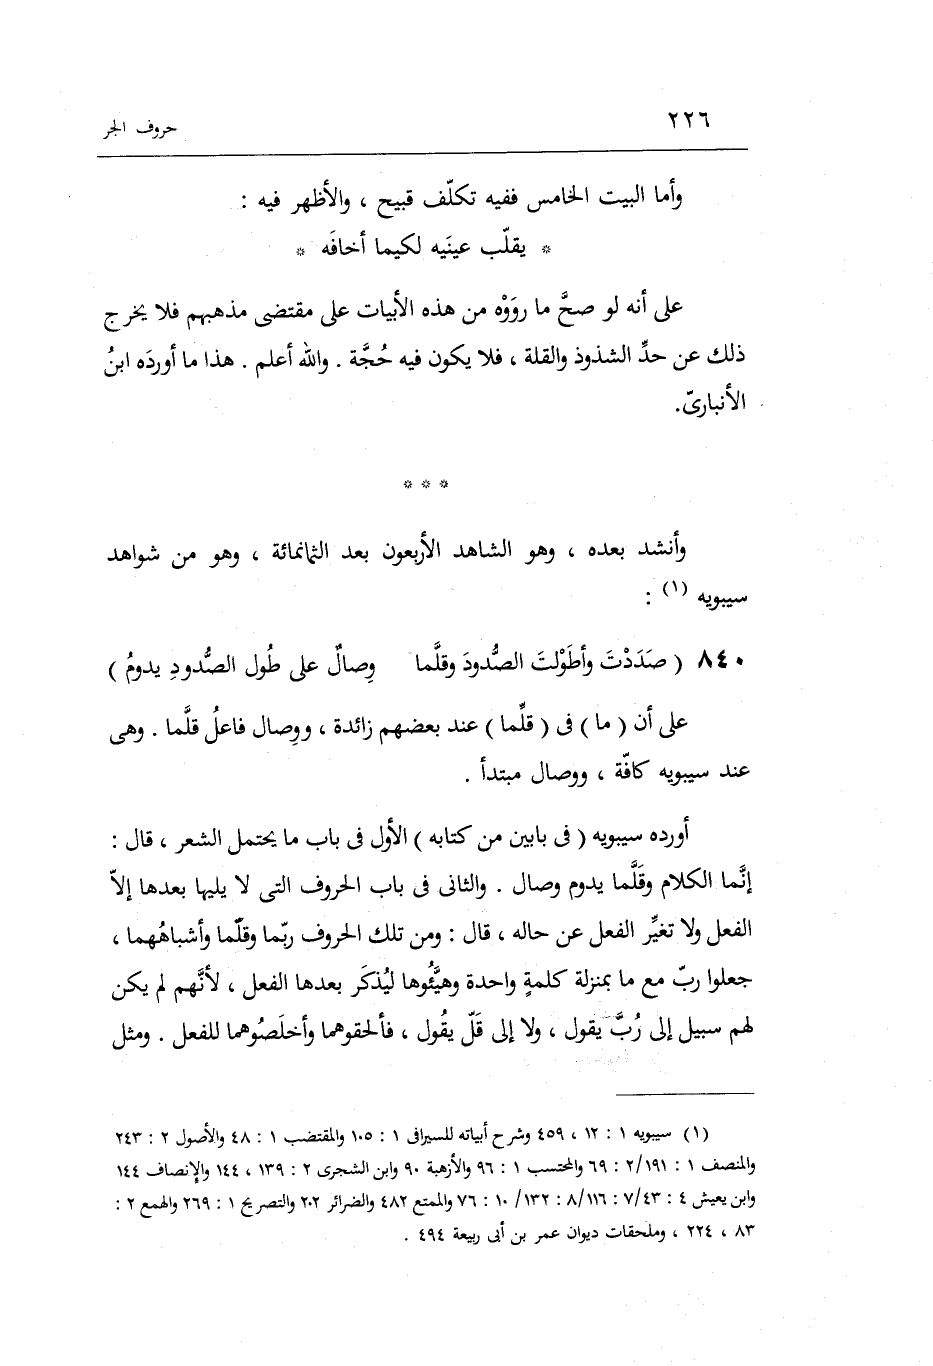 ٢٢٦
حروف الجر
وأما البيت الخامس ففيه تكلّف قبيح ، والأظهر فيه :
* يقلّب عينَيه لكيما أخافَه *
على أنه لو صحَّ ما روَوْه من هذه الأبيات على مقتضى مذهبهم فلا يخرج
ذلك عن حدِّ الشذوذ والقلة ، فلا يكون فيه حُجَّة . والله أعلم . هذا ما أوردَه ابنُ
الأنبارىّ.
* * *
وأنشد بعده ، وهو الشاهد الأربعون بعد الثمانمائة ، وهو من شواهد
سيبويه (١) :
٨٤٠ ( صَدَدْتَ وأطَوْلتَ الصُّدودَ وقلَّما وِصالٌ على طُول الصُّدودِ يدومُ )
على أن ( ما ) فى ( قلَّما ) عند بعضهم زائدة ، ووِصال فاعلُ قلَّما . وهى
عند سيبويه كافّة ، ووصال مبتدأ .
أورده سيبويه ( فى بابين من كتابه ) الأول فى باب ما يحتمل الشعر ، قال :
إنَّما الكلام وقَلَّما يدوم وصال . والثانى فى باب الحروف التى لا يليها بعدها إلاّ
الفعل ولا تغيِّر الفعل عن حاله ، قال : ومن تلك الحروف ربّما وقلّما وأشباهُهما ،
جعلوا ربّ مع ما بمنزلة كلمةٍ واحدة وهيَّئُوها ليُذكَر بعدها الفعل ، لأنَّهم لم يكن
لهم سبيل إلى رُبَّ يقول ، ولا إلى قَلّ يقُول ، فألحقوهما وأخلَصُوهما للفعل . ومثل
(١) سيبويه ١ : ١٢ ، ٤٥٩ وشرح أبياته للسيرافى ١ : ١٠٥ والمقتضب ١ : ٤٨ والأصول ٢ : ٢٤٣
والمنصف ١ : ٢/١٩١ : ٦٩ والمحتسب ١ : ٩٦ والأزهية ٩٠ وابن الشجرى ٢ : ١٣٩ ، ١٤٤ والإنصاف ١٤٤
وابن يعيش ٤ : ٧/٤٣ : ٨/١١٦ : ١٣٢/ ١٠ : ٧٦ والممتع ٤٨٢ والضرائر ٢٠٢ والتصريح ١ : ٢٦٩ والهمع ٢ :
٨٣ ، ٢٢٤ ، وملحقات ديوان عمر بن أبى ربيعة ٤٩٤ .